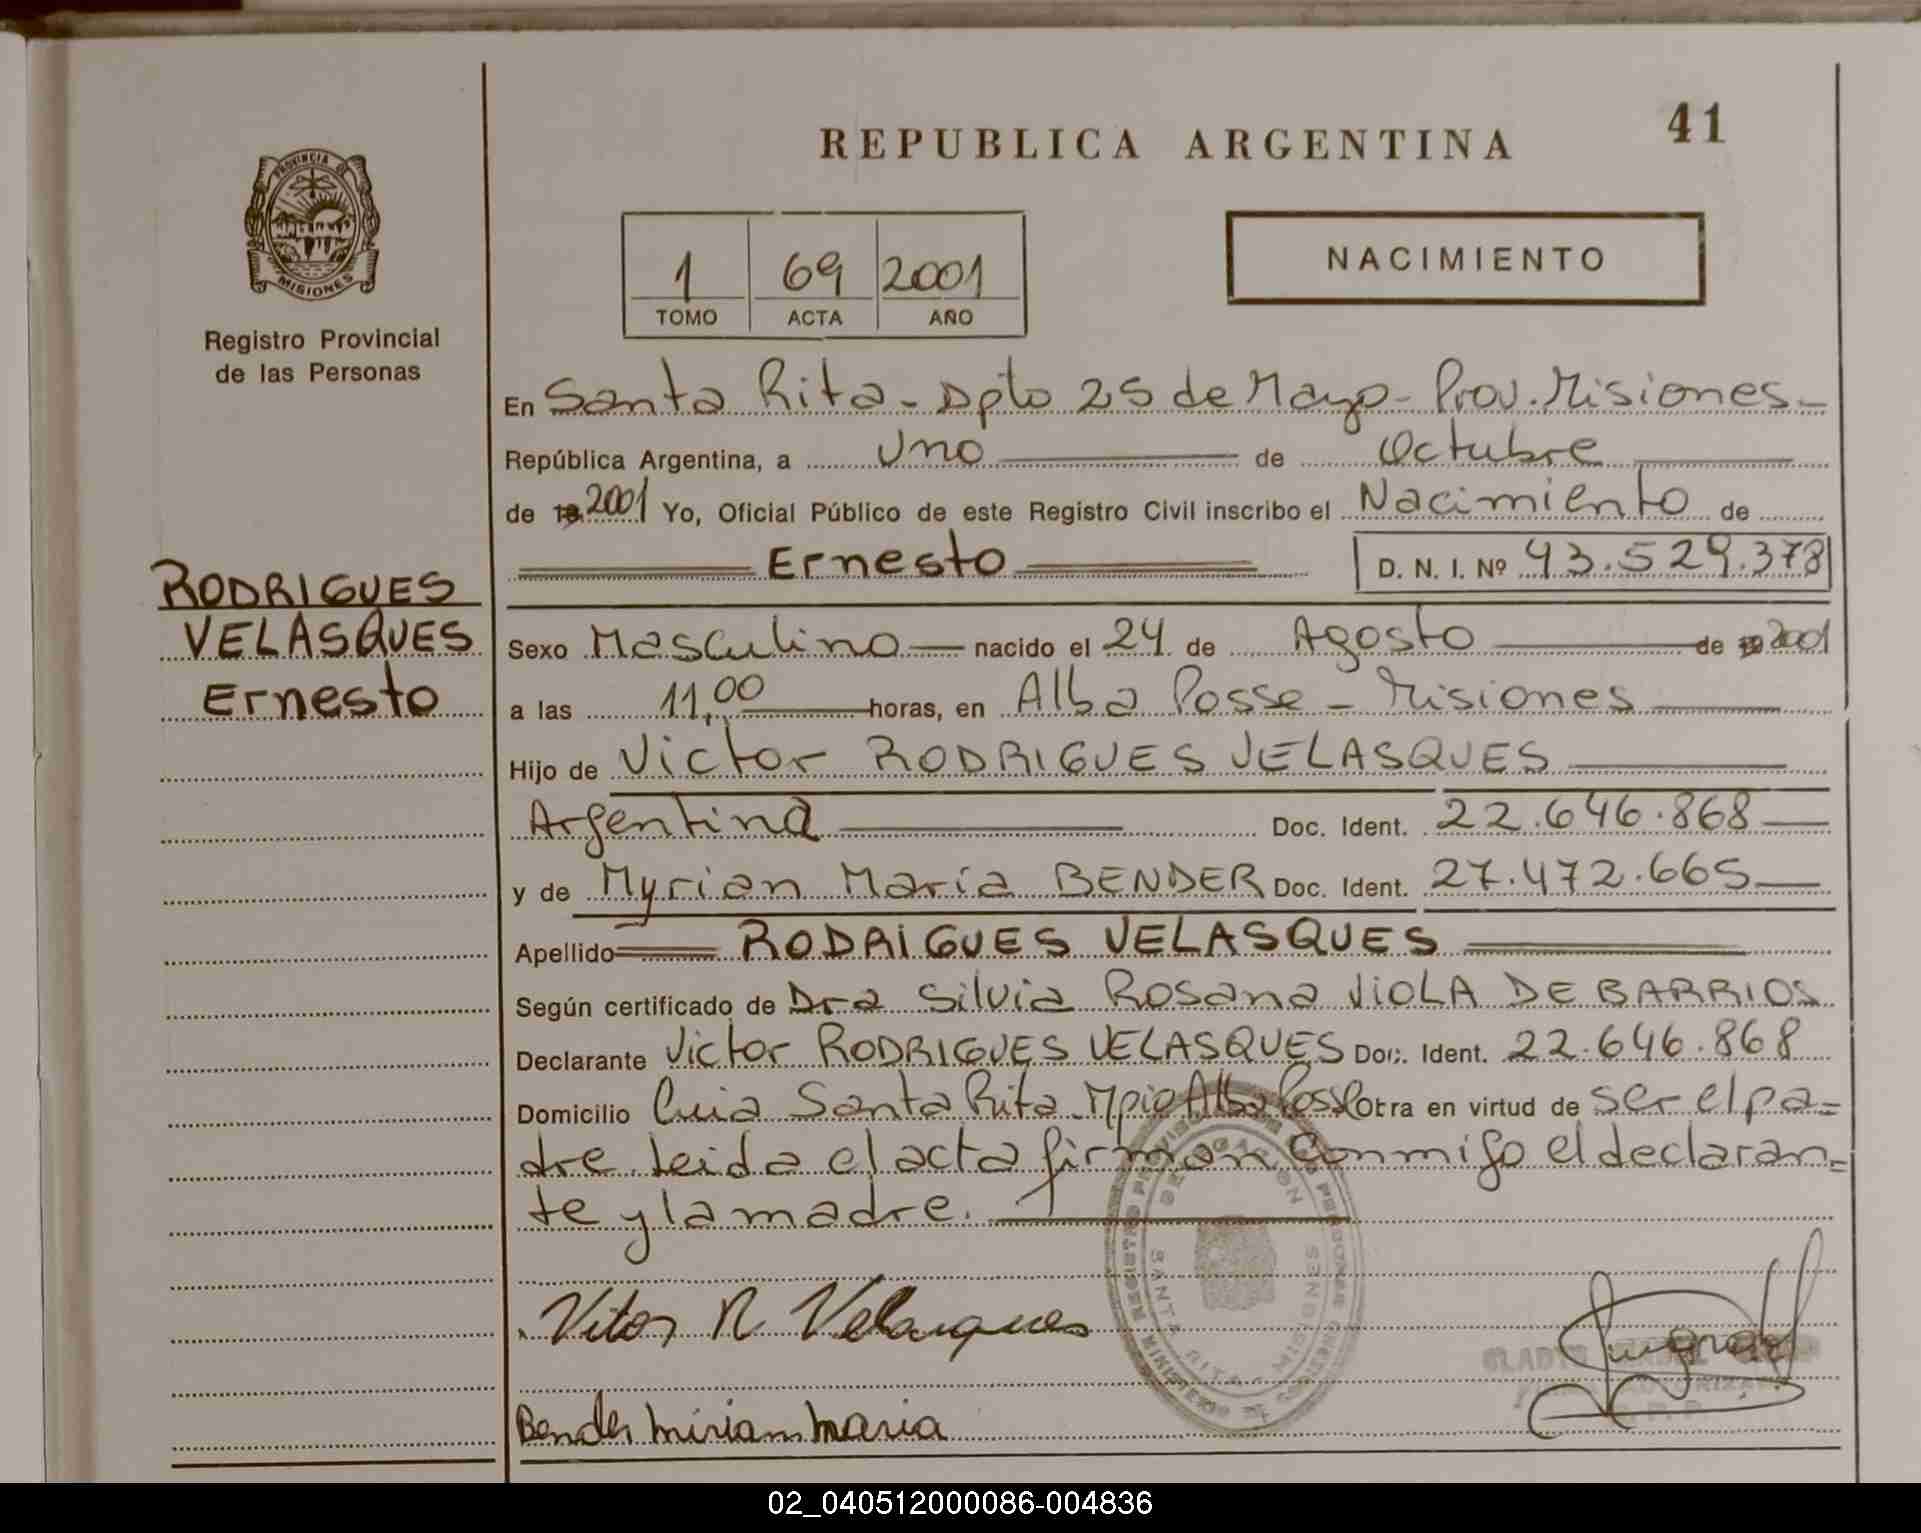 REPUBLICA ARGENTINA
41
PROVINCIA DE
MISIONES
Registro Provincial
de las Personas
1 69 2001
TOMO ACTA AÑO
NACIMIENTO
En Santa Rita - Dpto 25 de Mayo - Prov. Misiones -
República Argentina, a Uno de Octubre
de 19 2001 Yo, Oficial Público de este Registro Civil inscribo el Nacimiento de
Ernesto D. N. I. Nº 43.529.378
RODRIGUES
VELASQUES
Ernesto
Sexo Masculino nacido el 24 de Agosto de 19 2001
a las 11,00 horas, en Alba Posse - Misiones
Hijo de Victor RODRIGUES VELASQUES
Argentina Doc. Ident. 22.646.868
y de Myrian Maria BENDER Doc. Ident. 27.472.665
Apellido RODRIGUES VELASQUES
Según certificado de Dra Silvia Rosana VIOLA DE BARRIOS
Declarante Victor RODRIGUES VELASQUES Doc. Ident. 22.646.868
Domicilio Cuia Santa Rita Mpio Alba Posse Obra en virtud de ser el pa=
dre. Leida el acta firman conmigo el declaran=
te y la madre.
Vitor R Velasques
Bender miriam maria
DELEGACION
SANTA RITA - MISIONES
GLADYS
02_040512000086-004836